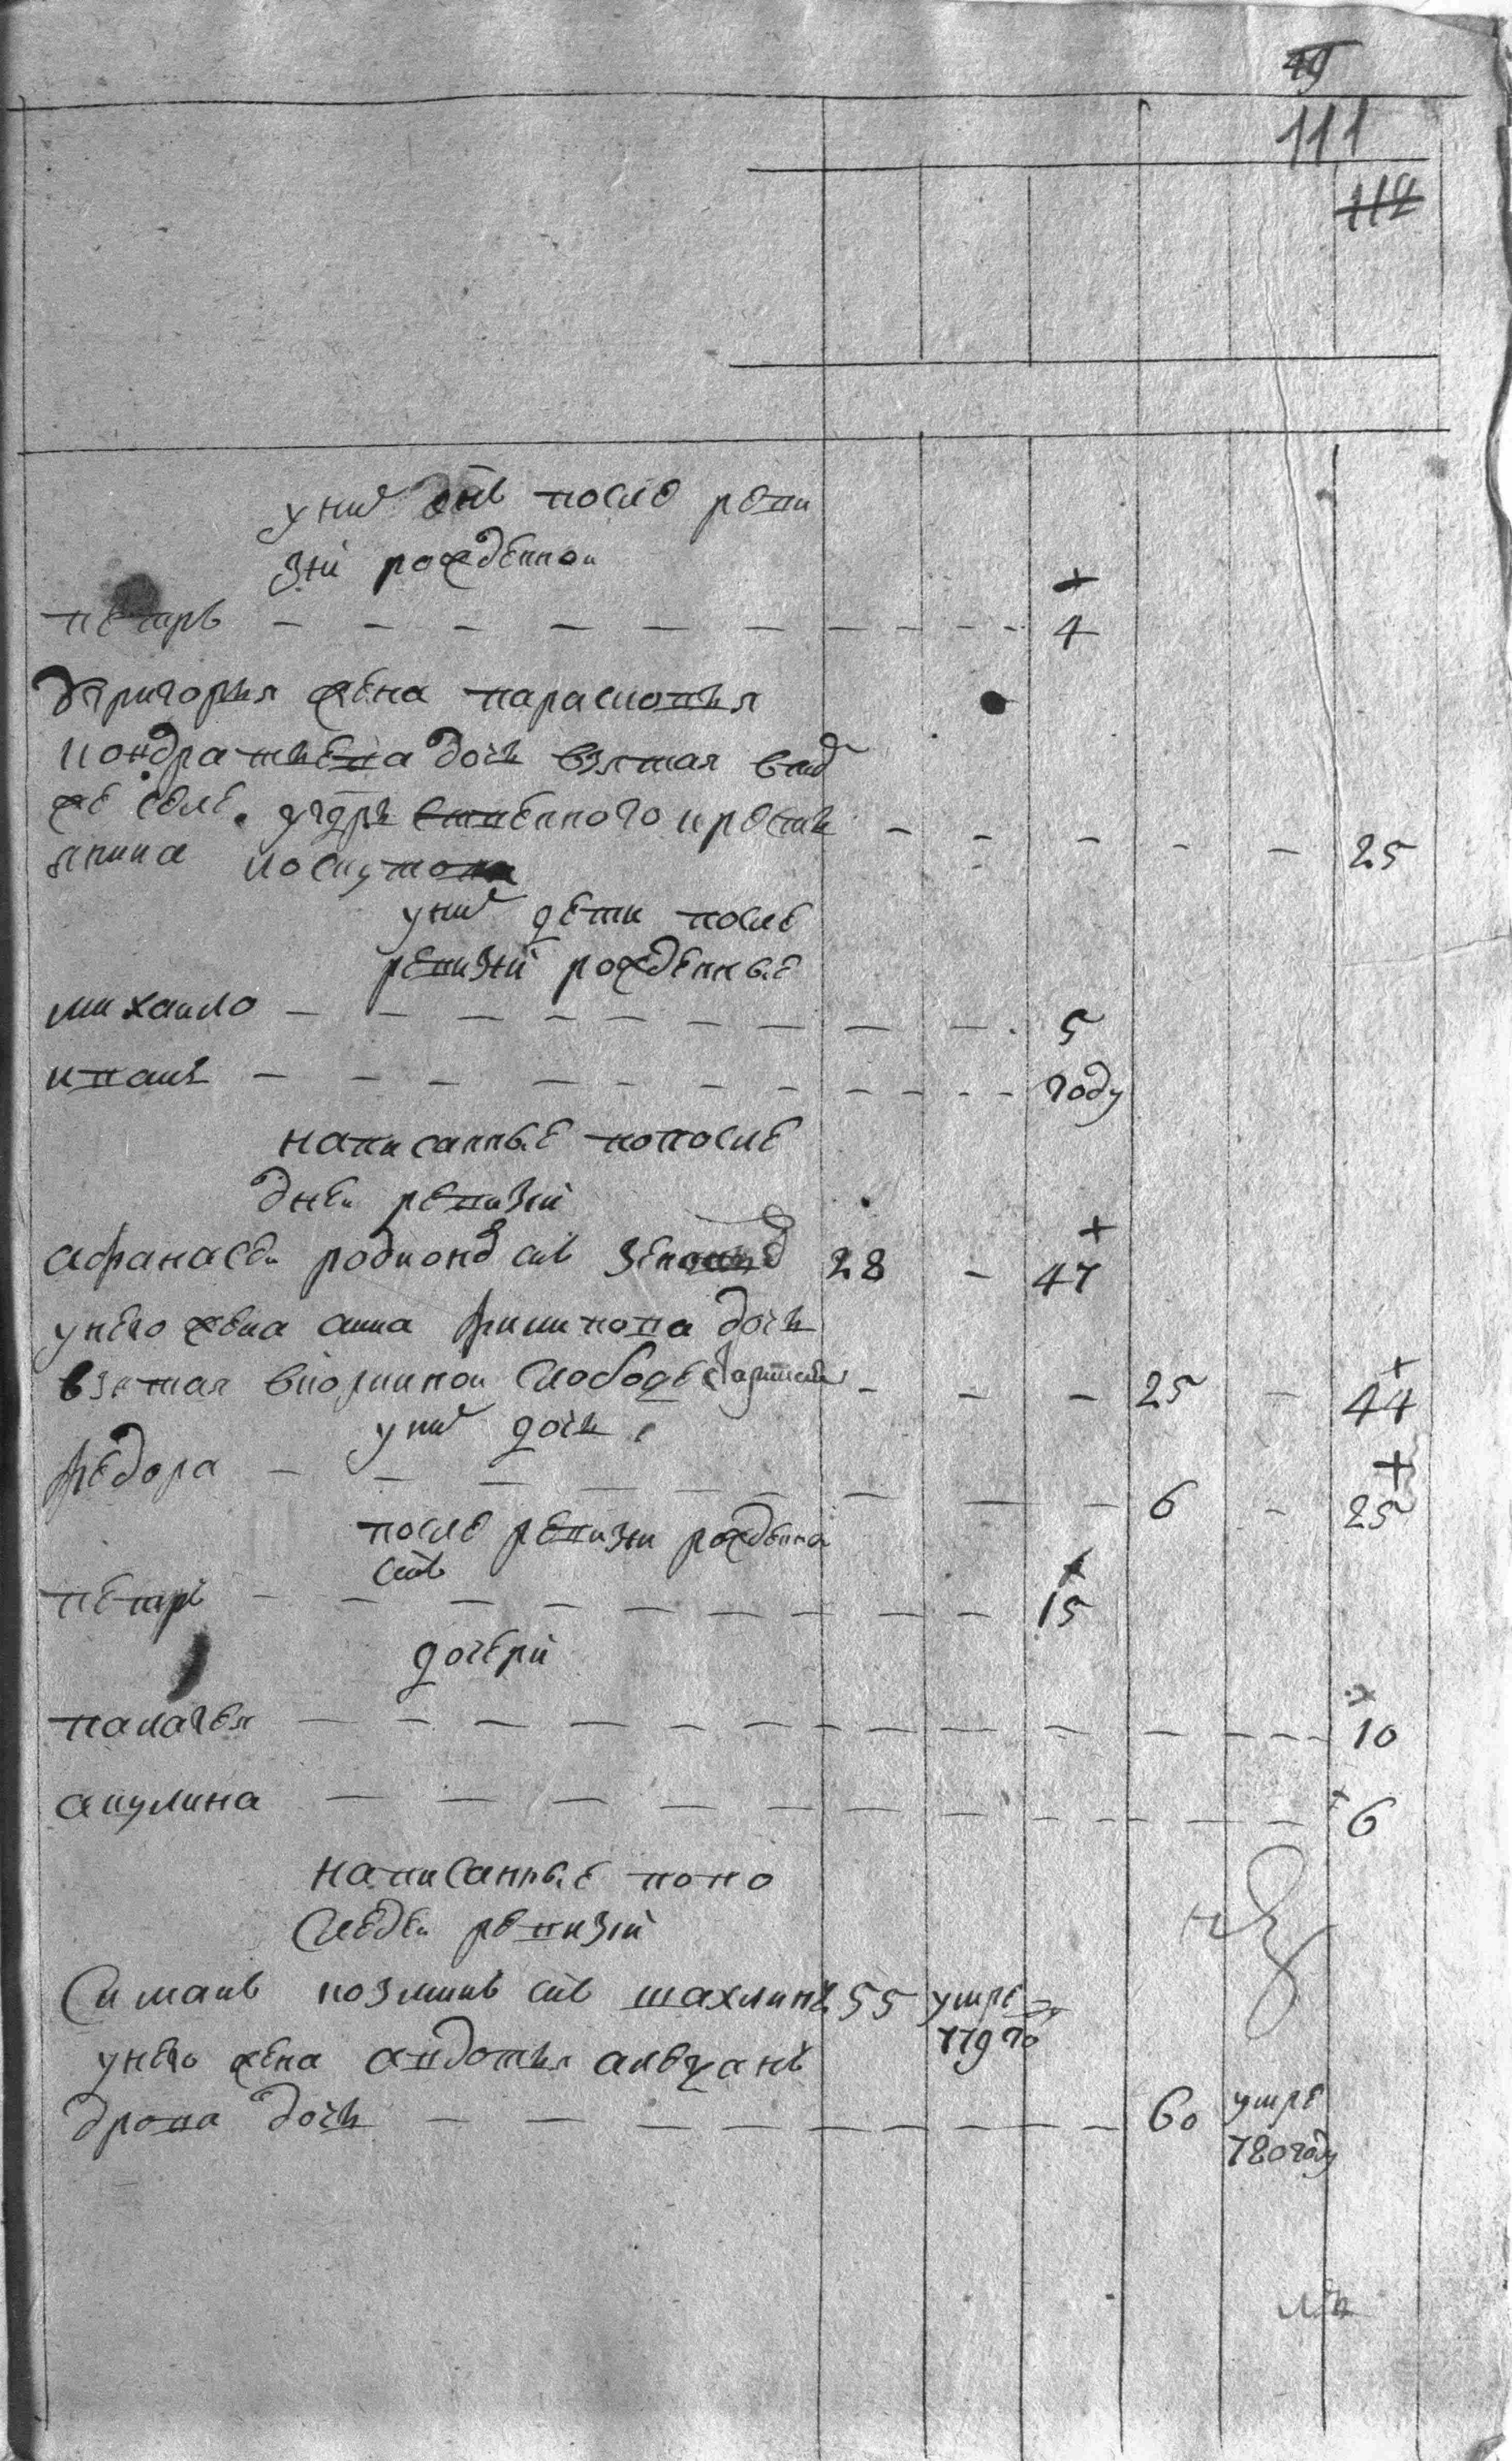 111
112
у них снъ после реви
зіи рожденной
петръ — — — — — — — — — 4
у Григорья жена парасковья
кондратьева дочь взятая втом
же селе у государственного кресть
янина — — — — — 25
у них дети после
ревизіи рожденные
михайло — — — — — — — — 5
иванъ — — — — — — — — году
написанные попосле
дней ревизіи
афанасей родионов снъ 28 — 47
у него жена анна филипова дочь
взятая в слободе — — — 25 — 44
у них дочь
федора — — — — — — — — — 6 — 25
после ревизии рожденна
снъ
петръ — — — — — — — — — 15
дочери
палагея — — — — — — — — — — — 10
акулина — — — — — — — — — — — 6
написанные попо
следей ревизіи
Симанъ козминъ снъ шахлинъ 55 умре
779 го
у него жена авдотья алеѯанъ
дрова дочь — — — — — — — 60 умре
780 году